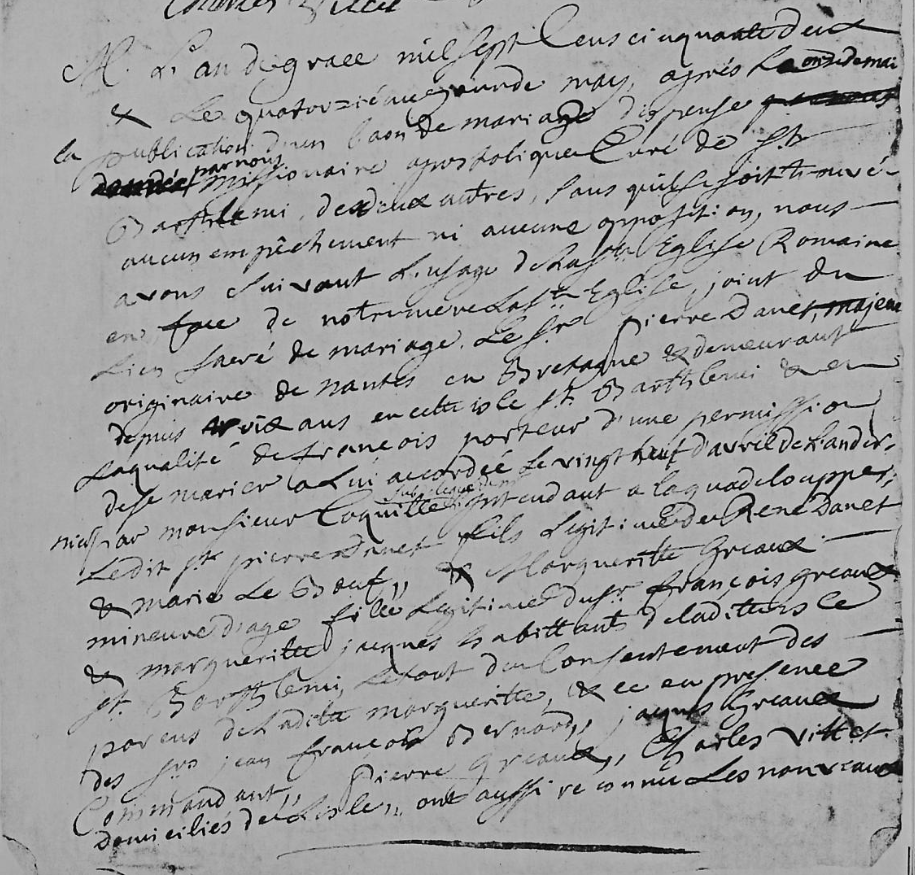 M. L'an de grace mil sept Cens cinquante deux
& Le quatorziéme jour de may, après La
la publication d'un baon de mariage dispense
par nous
missionaire apostolique Curé de St
Barthlemi, des deux autres, sans qu'il se soit trouvé
aucun empêchement ni aucune opposition, nous
avons Suivant L'usage de La Ste Eglise Romaine
en face de notre mere La Ste Eglise, joint du
Lien Sacré de mariage. Le Sr Pierre Danet, majeur
originaire de nantes en Bretagne & demeurant
depuis ans en cette isle St. Barthlemi & en
Laqualité de françois porteur d'une permission
de se marier a Lui accordée Le vingt huit d'avril de L'an der-
nier par monsieur Coquille Intendant a laguadelouppe;
Subdelegué
Ledit Sr. pierre Danet fils Legitime de René Danet
& marie Le Bœuf,, & Margueritte Greaux
mineure d'age fille Legitime du Sr. françois greaux
& margueritte jacques habittants de laditte isle
St. Barthlemi, Le tout du Consentement des
parens de Ladite marguerite, & ce en presence
des Srs jean françois Bernard,, jaques Greaux
Commandant,, Pierre Greaux,, Charles Vittet
Domiciliés de L'isle,, ont aussi reconnu Les nouveaux